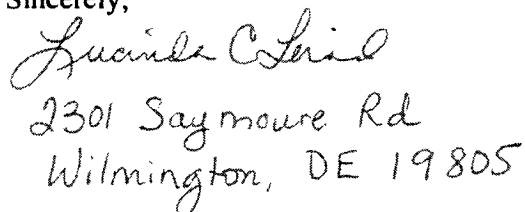 Sincerely,
Lucinda C
2301 Saymoure Rd
Wilmington, DE 19805